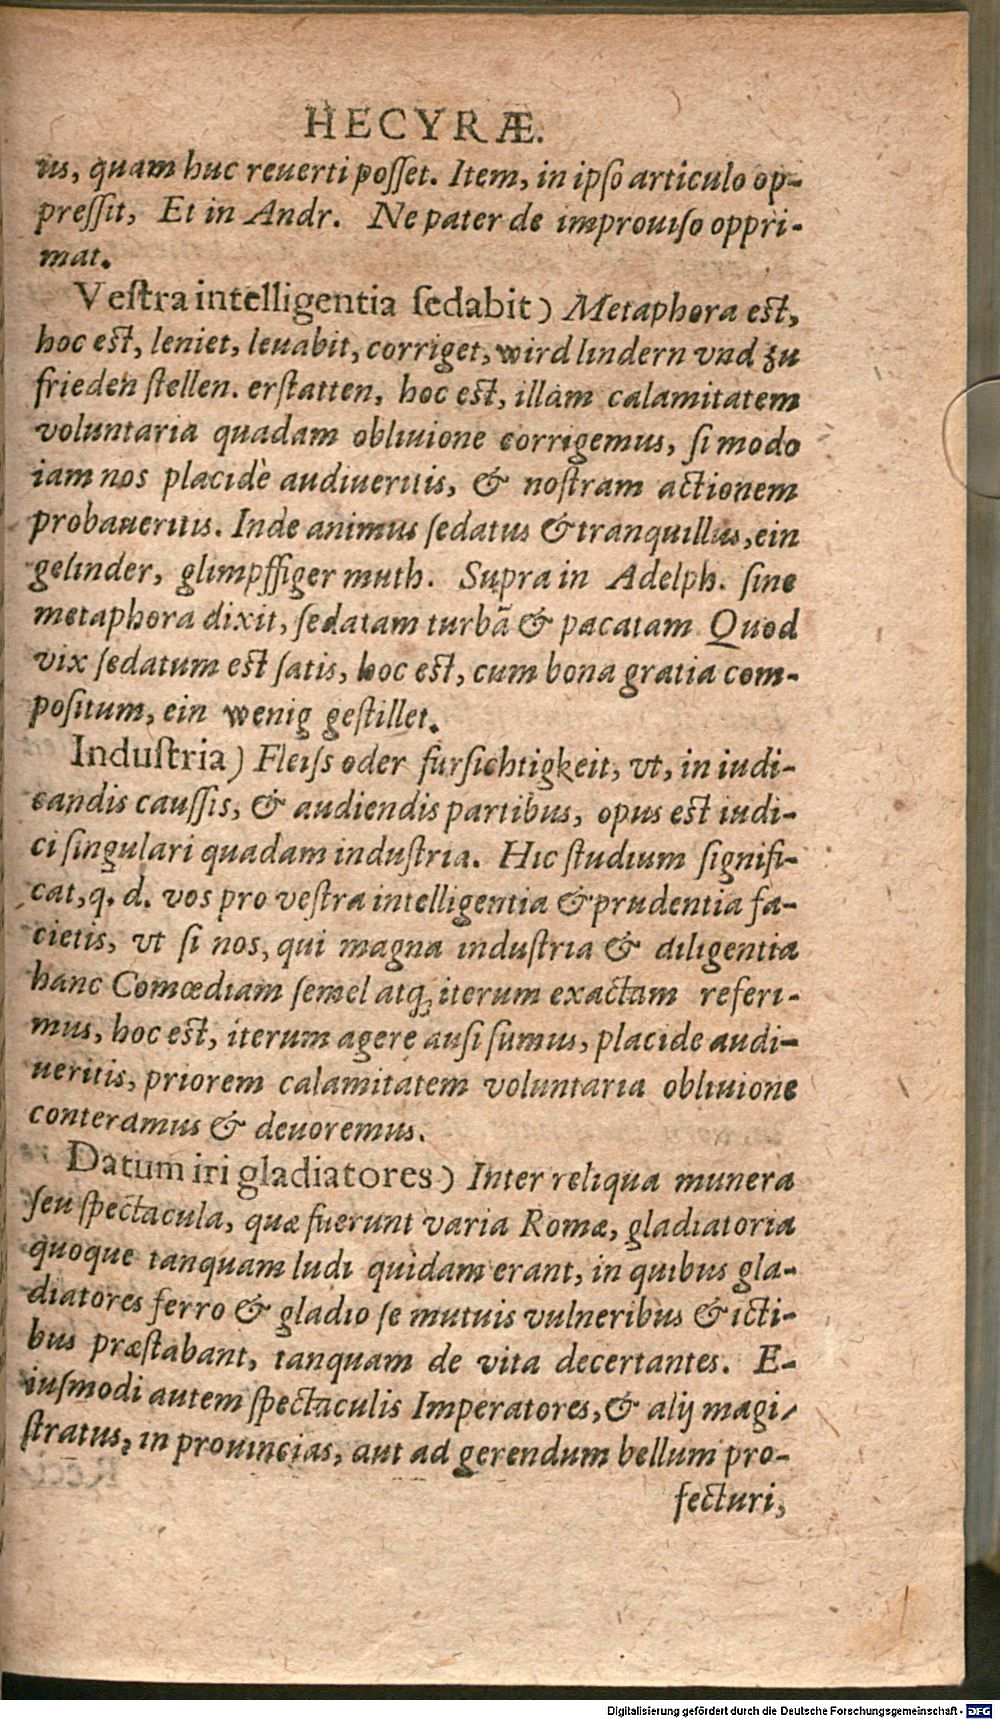 HECYRÆ.
us, quam huc reuerti posset. Item, in ipso articulo op-
pressit, Et in Andr. Ne pater de improuiso oppri-
mat.
Vestra intelligentia sedabit) Metaphora est,
hoc est, leniet, leuabit, corriget, wird lindern vnd zu
frieden stellen. erstatten, hoc est, illam calamitatem
voluntaria quadam obliuione corrigemus, si modo
iam nos placidè audiueritis, & nostram actionem
probaueritis. Inde animus sedatus & tranquillus, ein
gelinder, glimpffiger muth. Supra in Adelph. sine
metaphora dixit, sedatam turbã & pacatam Quod
vix sedatum est satis, hoc est, cum bona gratia com-
positum, ein wenig gestillet.
Industria) Fleiss oder fursichtigkeit, vt, in iudi-
candis caussis, & audiendis partibus, opus est iudi-
ci singulari quadam industria. Hic studium signifi-
cat, q. d. vos pro vestra intelligentia & prudentia fa-
cietis, vt si nos, qui magna industria & diligentia
hanc Comœdiam semel atq; iterum exactam referi-
mus, hoc est, iterum agere ausi sumus, placide audi-
ueritis, priorem calamitatem voluntaria obliuione
conteramus & deuoremus.
Datum iri gladiatores) Inter reliqua munera
seu spectacula, quæ fuerunt varia Romæ, gladiatoria
quoque tanquam ludi quidam erant, in quibus gla-
diatores ferro & gladio se mutuis vulneribus & icti-
bus præstabant, tanquam de vita decertantes. E-
iusmodi autem spectaculis Imperatores, & alij magi-
stratus, in prouincias, aut ad gerendum bellum pro-
fecturi,
Digitalisierung gefördert durch die Deutsche Forschungsgemeinschaft - DFG